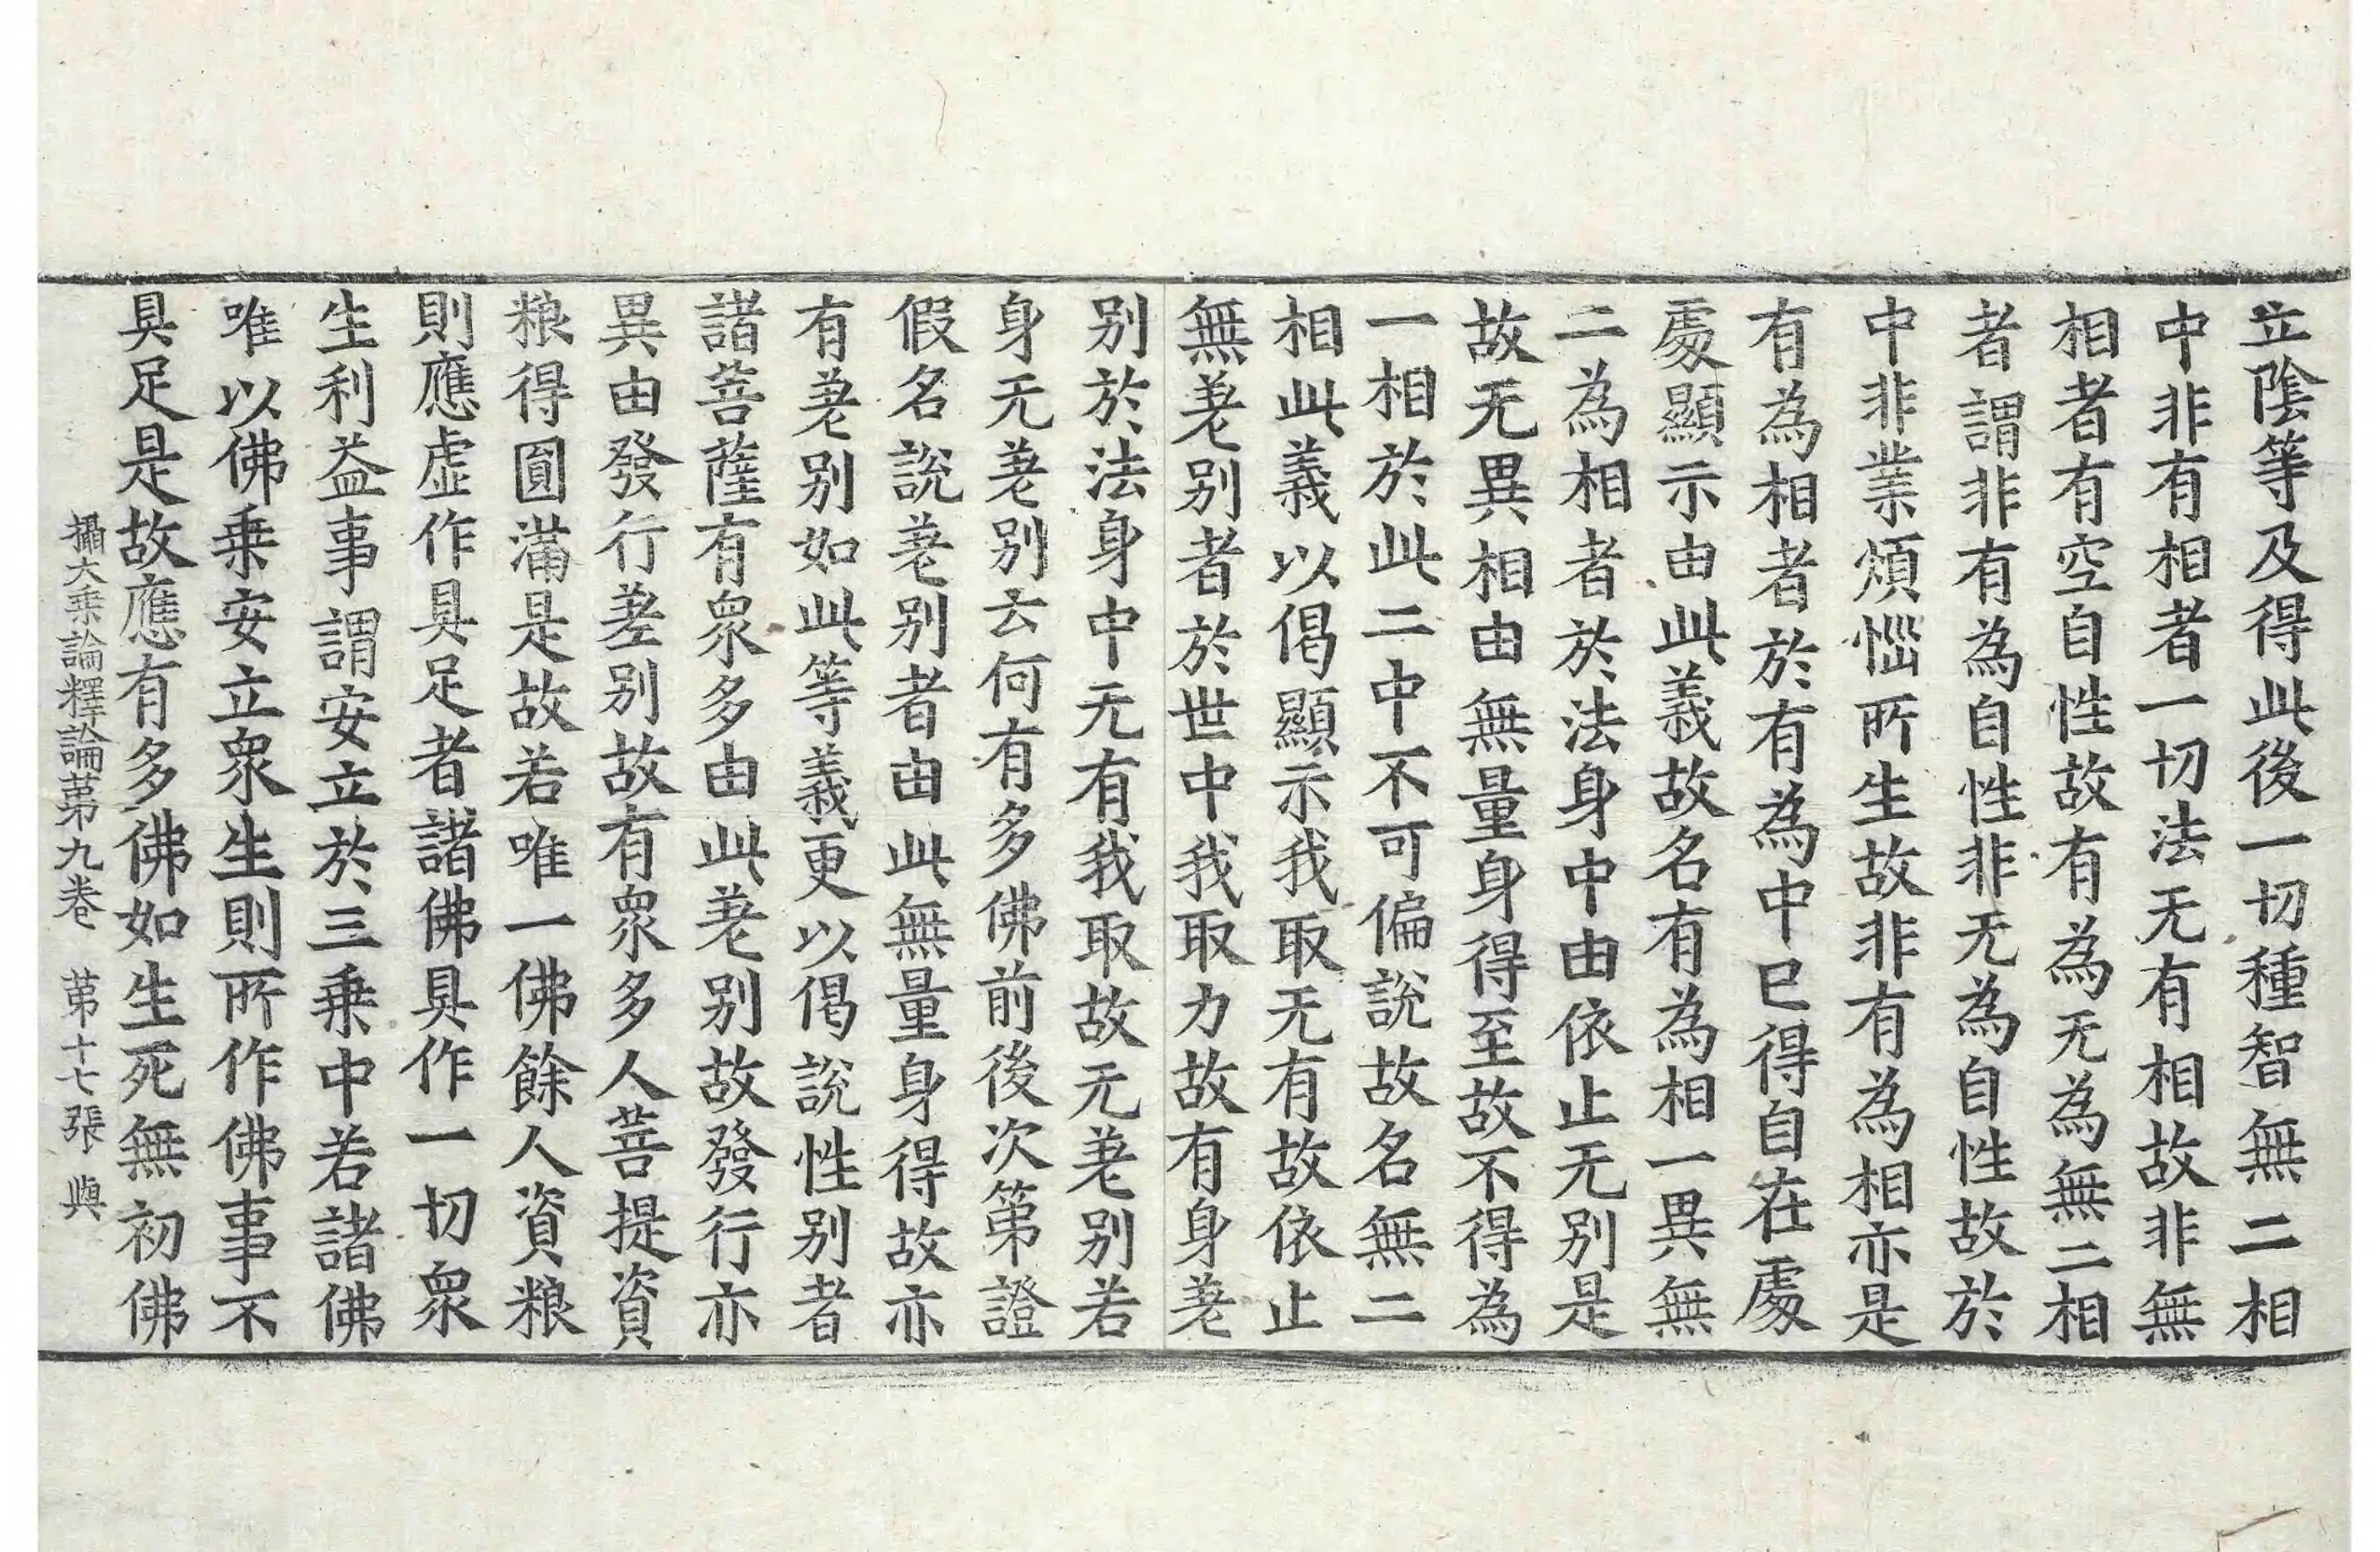 立陰等及得此後一切種智無二相
中非有相者一切法无有相故非無
相者有空自性故有為无為無二相
者謂非有為自性非无為自性故於
中非業煩惱所生故非有為相亦是
有為相者於有為中已得自在處
處顯示由此義故名有為相一異無
二為相者於法身中由依止无別是
故无異相由無量身得至故不得為
一相於此二中不可偏說故名無二
相此義以偈顯示我取无有故依止
無差別者於世中我取力故有身差
別於法身中无有我取故无差別若
身无差別云何有多佛前後次第證
假名說差別者由此無量身得故亦
有差別如此等義更以偈說性別者
諸菩薩有衆多由此差別故發行亦
異由發行差別故有衆多人菩提資
粮得圓滿是故若唯一佛餘人資粮
則應虛作具足者諸佛具作一切衆
生利益事謂安立於三乗中若諸佛
唯以佛乗安立衆生則所作佛事不
具足是故應有多佛如生死無初佛
攝大乗論釋論苐九卷 苐十七張 與